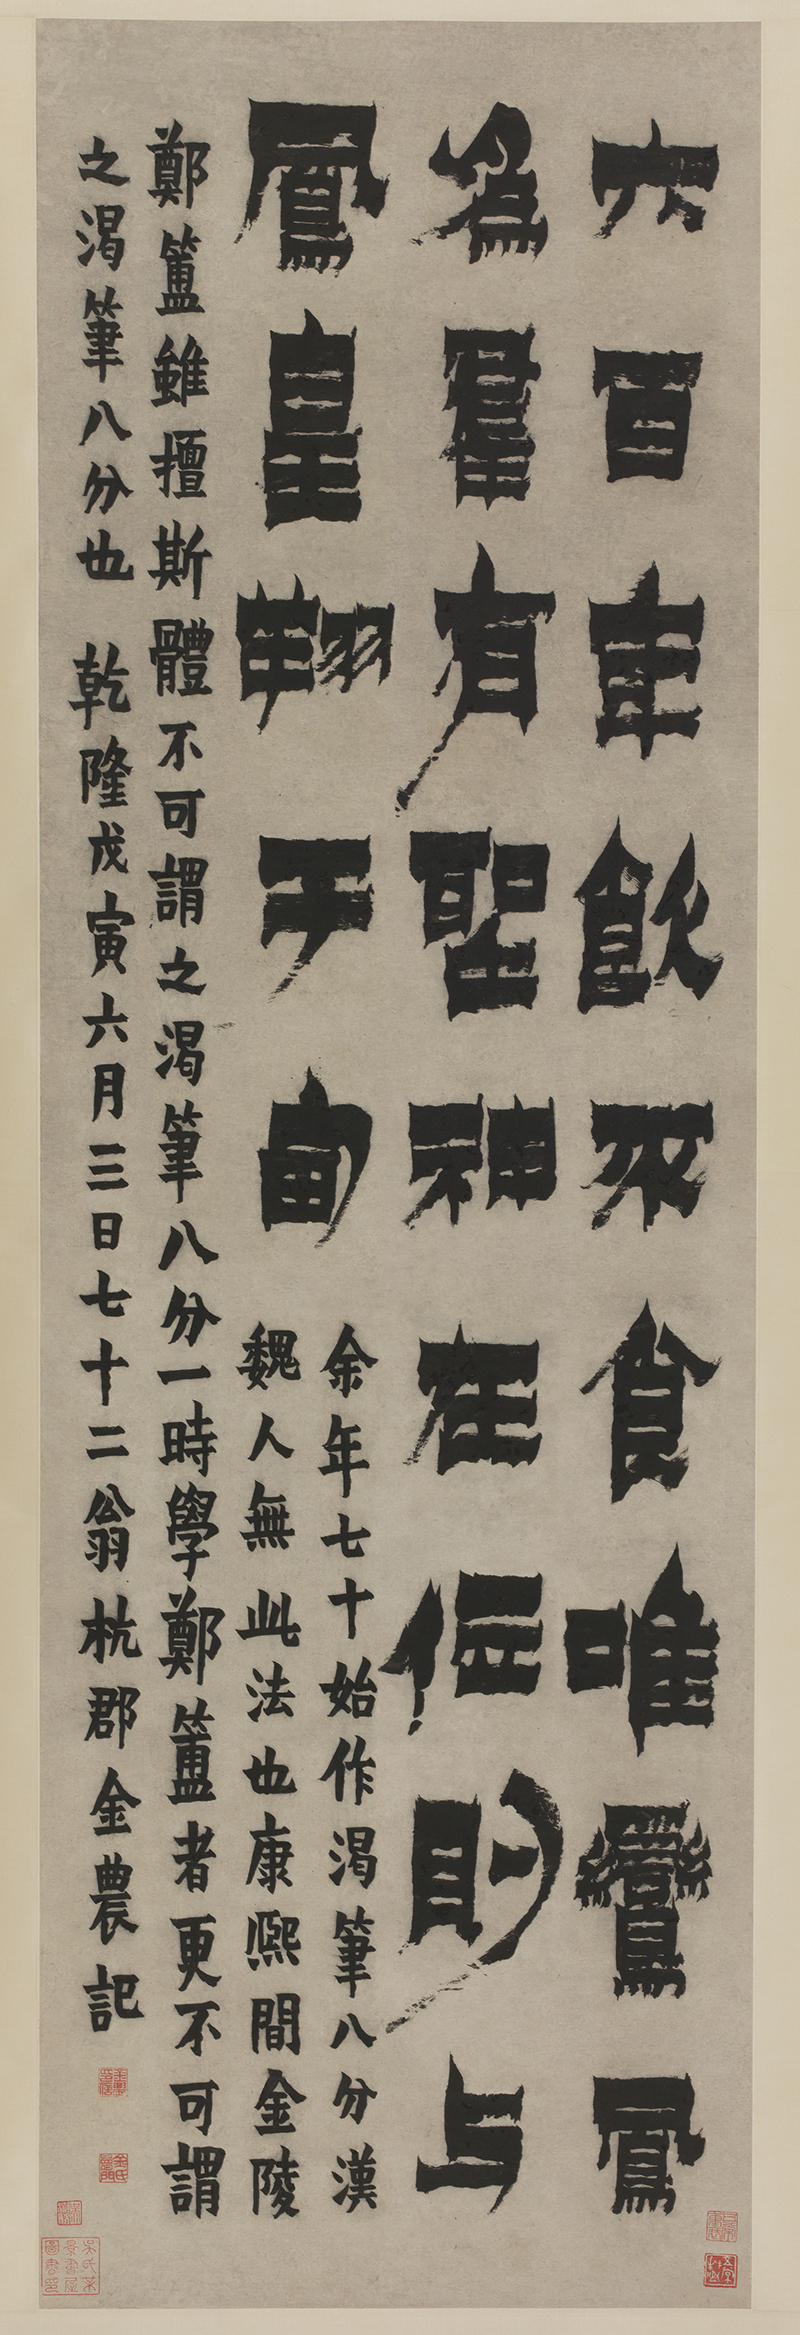 六百年飲不食唯鸞鳳
為羣有聖神在位則与
鳳皇翔于甸
余年七十始作渴筆八分漢
魏人無此法也康熙間金陵
鄭簠雖擅斯體不可謂之渴筆八分一時學鄭簠者更不可謂
之渴筆八分也 乾隆戊寅六月三日七十二翁杭郡金農記
金農印信
金氏壽門